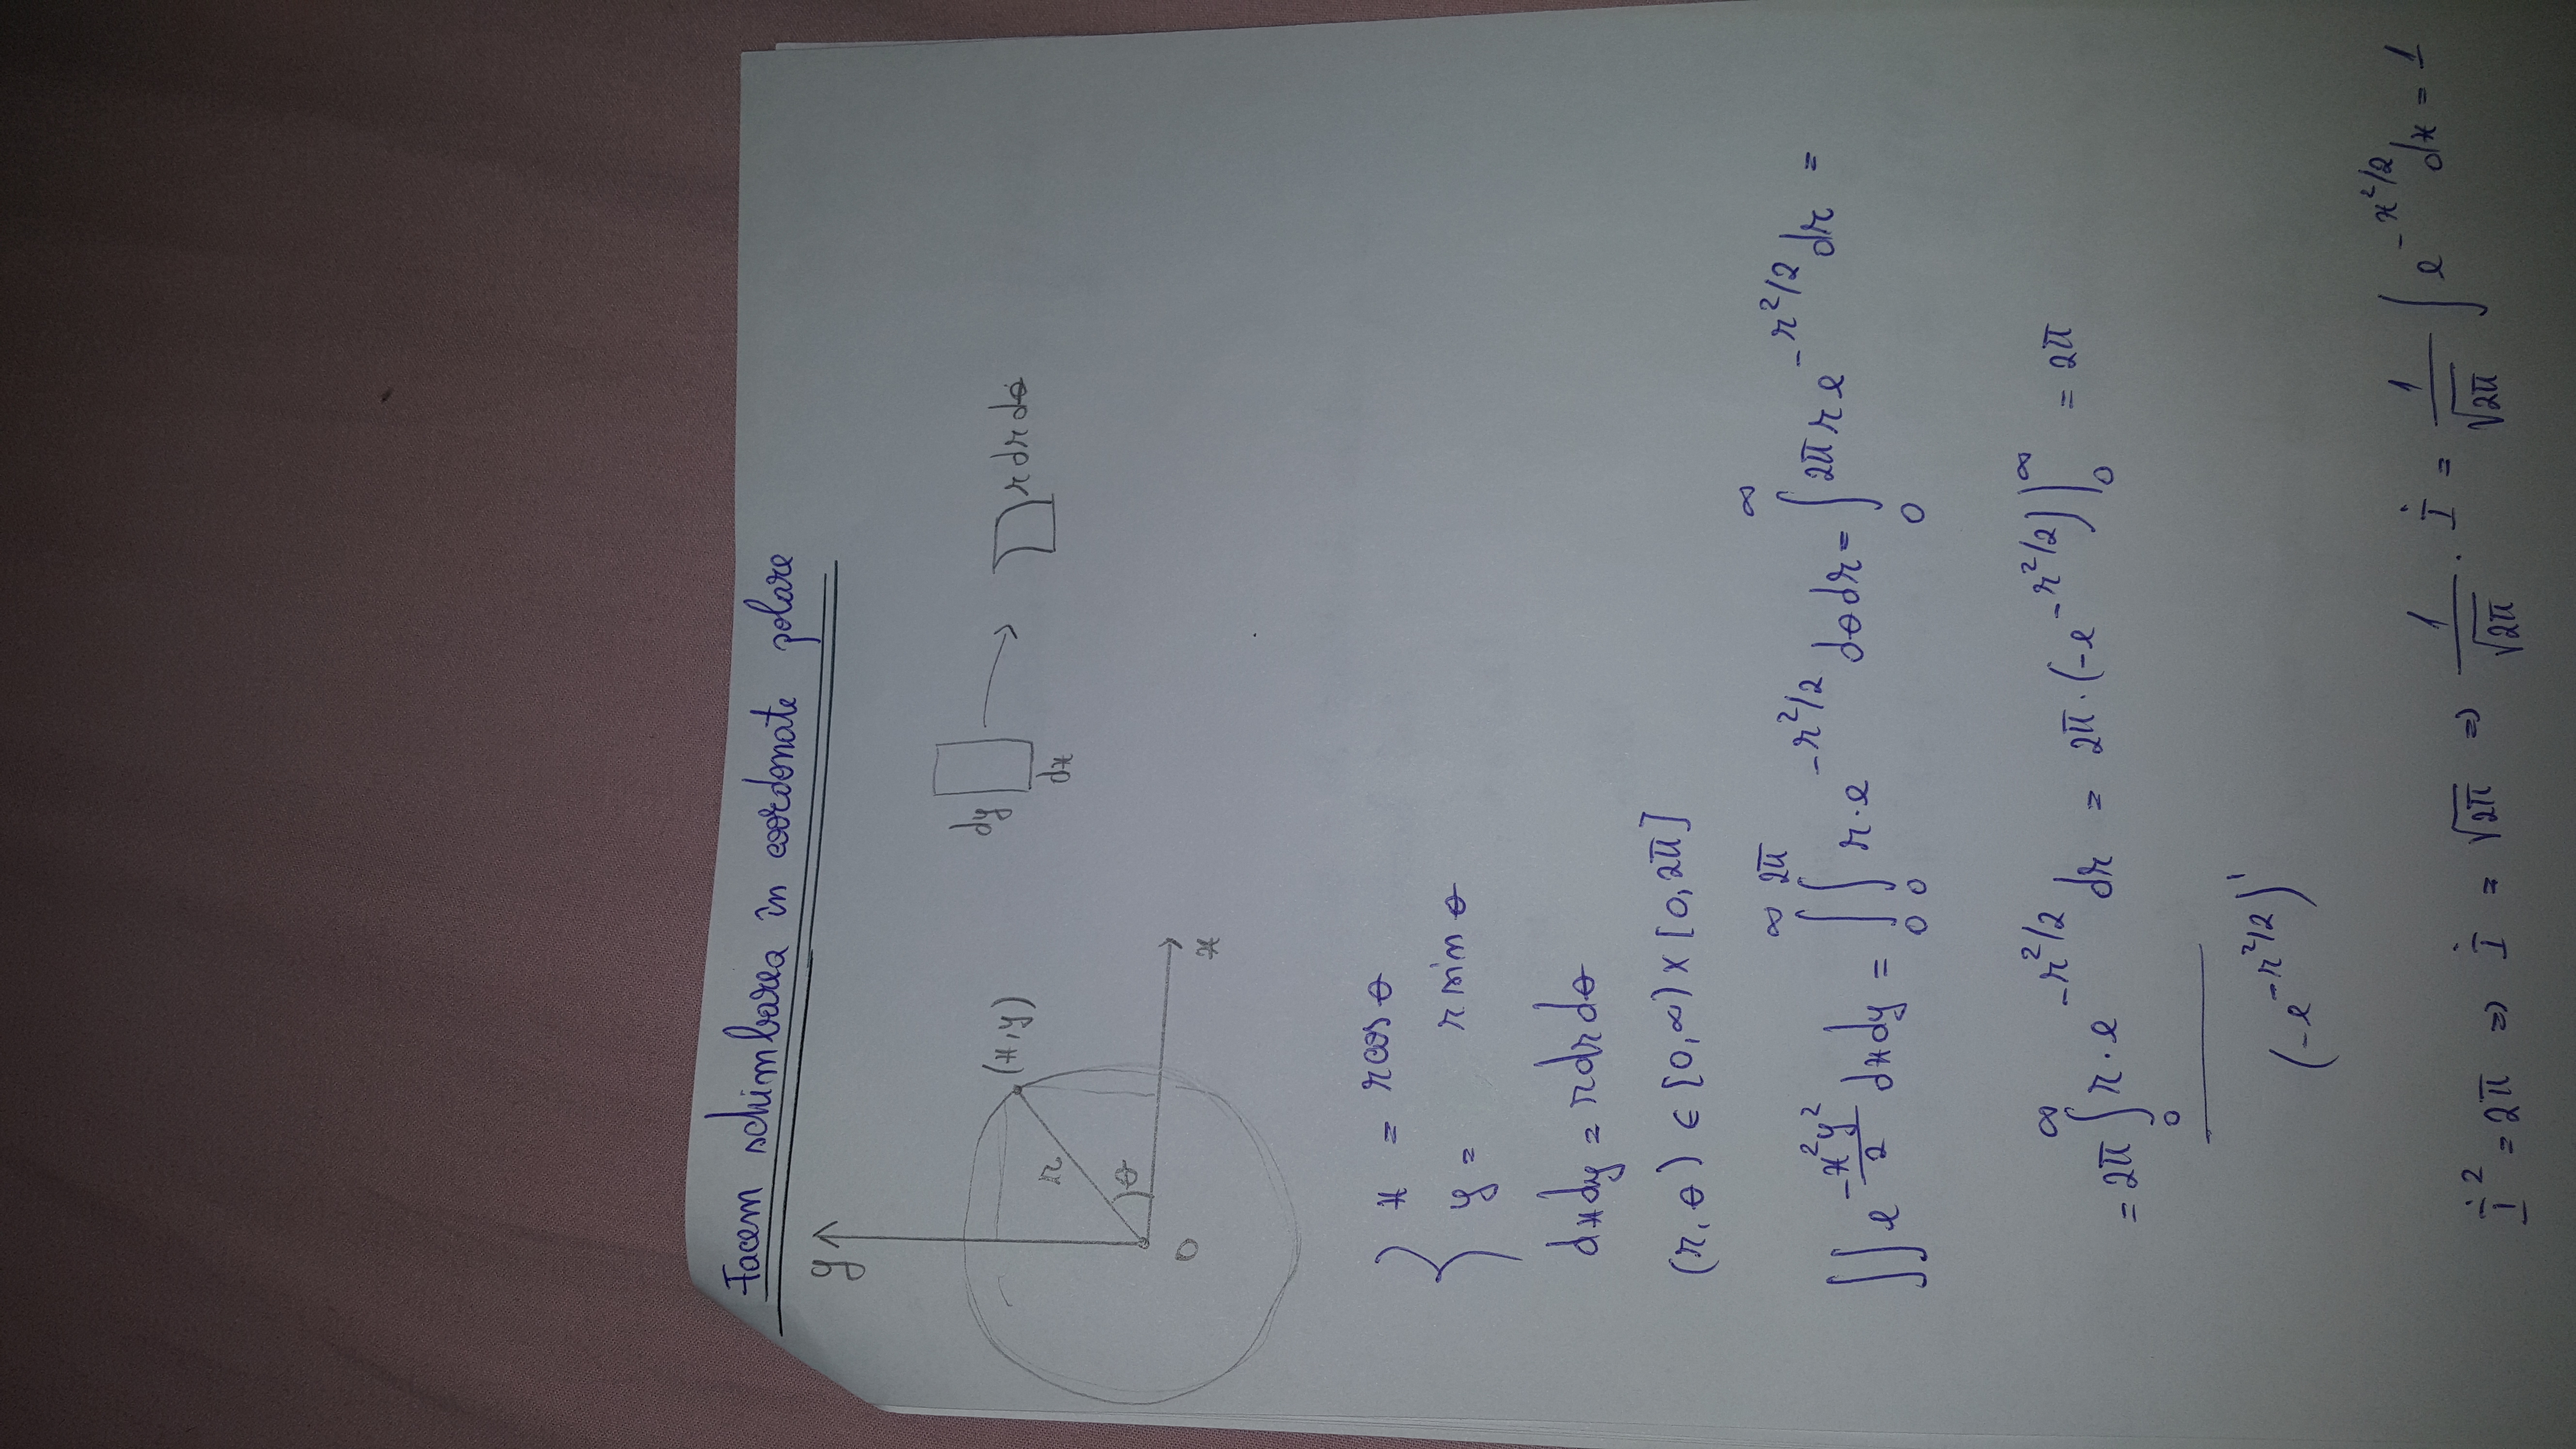 Facem schimbarea în coordonate polare
y
(x,y)
r
θ
O
x
dy
dx
r dr dθ
{ x = r cos θ
y = r sin θ
dxdy = r dr dθ
(r, θ) ∈ [0,∞) × [0, 2π]
∬ e^{-\frac{x^2 y^2}{2}} dxdy = ∫_0^∞ ∫_0^{2π} r · e^{-r^2/2} dθ dr = ∫_0^∞ 2π r e^{-r^2/2} dr =
= 2π ∫_0^∞ r · e^{-r^2/2} dr = 2π · (-e^{-r^2/2}) |_0^∞ = 2π
(-e^{-r^2/2})'
I^2 = 2π => I = √2π => \frac{1}{√2π} · I = \frac{1}{√2π} ∫ e^{-x^2/2} dx = 1